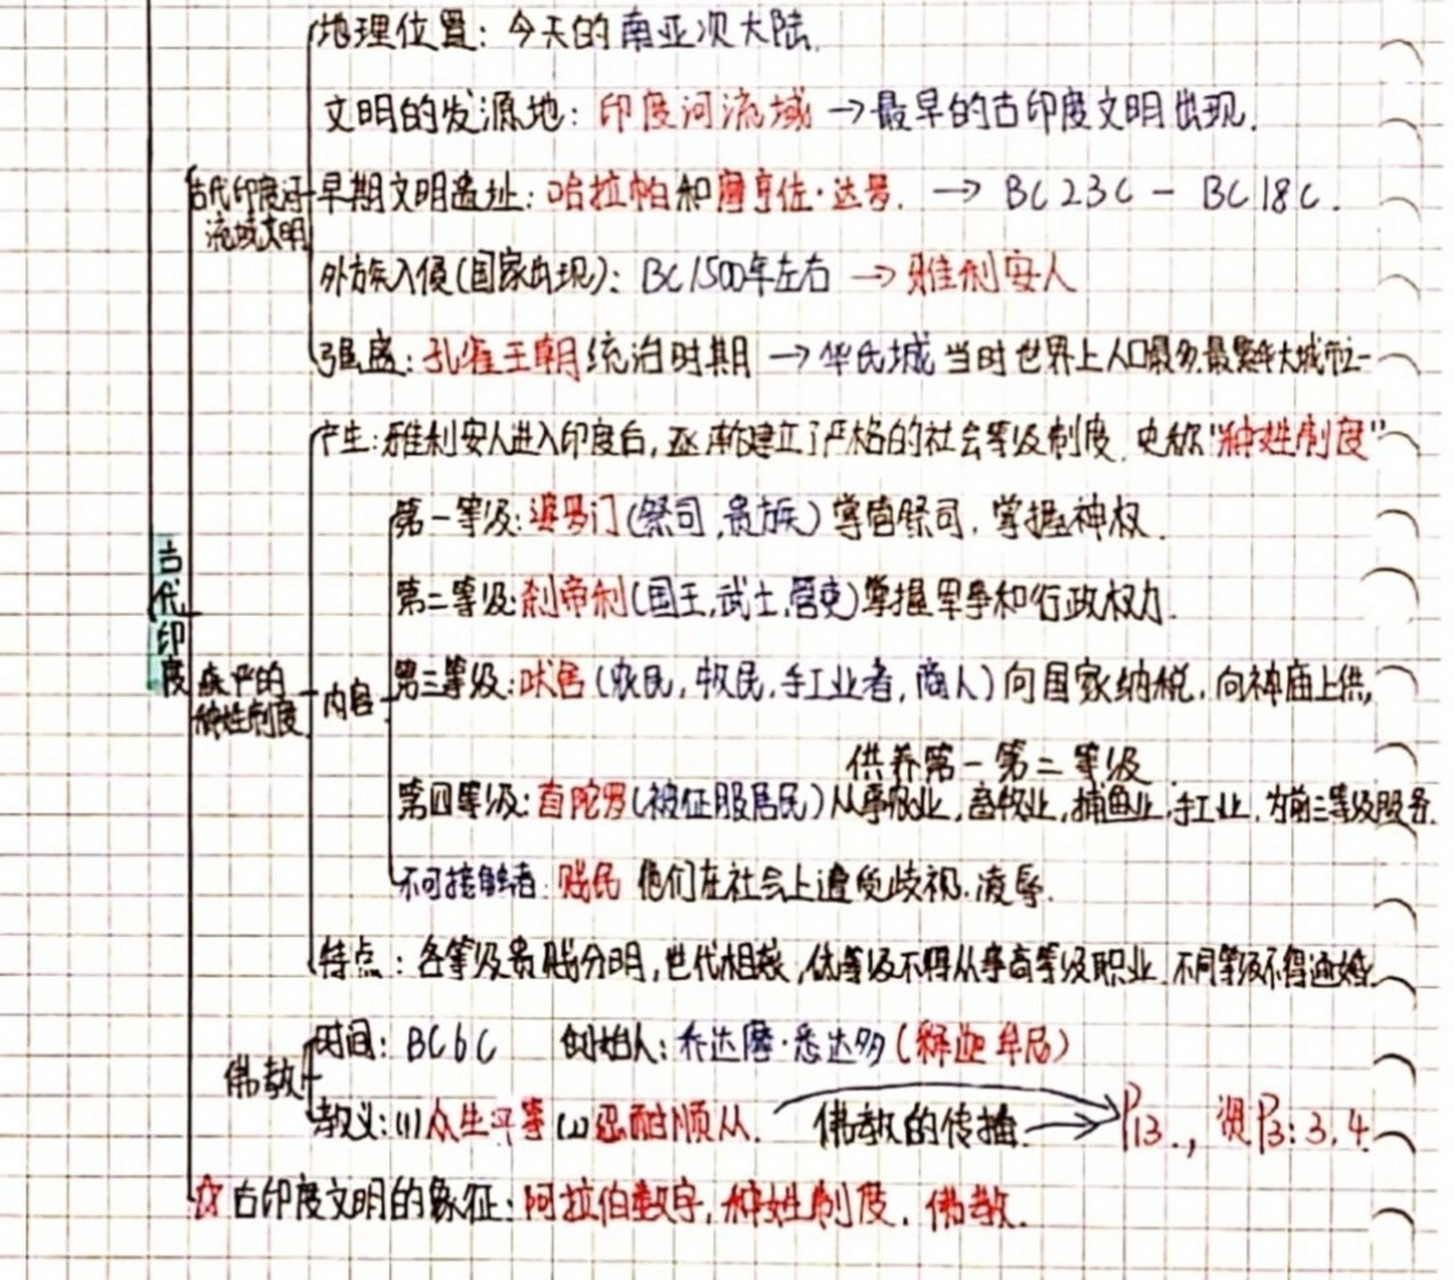 地理位置：今天的南亚次大陆.
文明的发源地：印度河流域 →最早的古印度文明出现.
古代印度河
流域文明
早期文明遗址：哈拉帕和摩亨佐·达罗. → BC23C - BC18C.
外族入侵(国家出现)：BC1500年左右 → 雅利安人
强盛：孔雀王朝统治时期 → 华氏城 当时世界上人口最多.最繁华大城市之一
产生：雅利安人进入印度后,逐渐建立了严格的社会等级制度.史称"种姓制度"
第一等级：婆罗门(祭司,贵族)掌管祭司.掌握神权.
第二等级：刹帝利(国王,武士,官吏)掌握军事和行政权力.
古代印度
森严的
种姓制度
内容
第三等级：吠舍(农民,牧民,手工业者,商人)向国家纳税.向神庙上供,
供养第一第二等级.
第四等级：首陀罗(被征服居民)从事农业,畜牧业,捕鱼业,手工业.为前三等级服务.
不可接触者：贱民 他们在社会上遭受歧视.凌辱.
特点：各等级贵贱分明,世代相袭,低等级不得从事高等级职业.不同等级不得通婚.
时间：BC6C 创始人：乔达摩·悉达多(释迦牟尼)
佛教
教义：(1)众生平等(2)忍耐顺从. 佛教的传播. → P13., 资P3：3.4.
☆古印度文明的象征：阿拉伯数字,种姓制度.佛教.